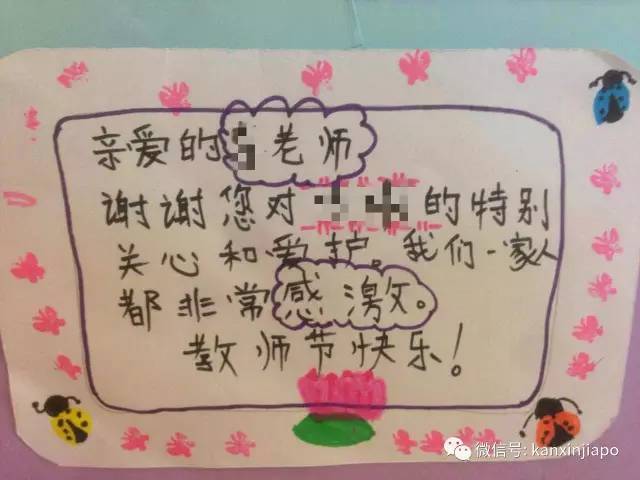 亲爱的 老师
谢谢您对 的特别
关心和爱护。我们一家人
都非常感激。
教师节快乐!
微信号: kanxinjiapo